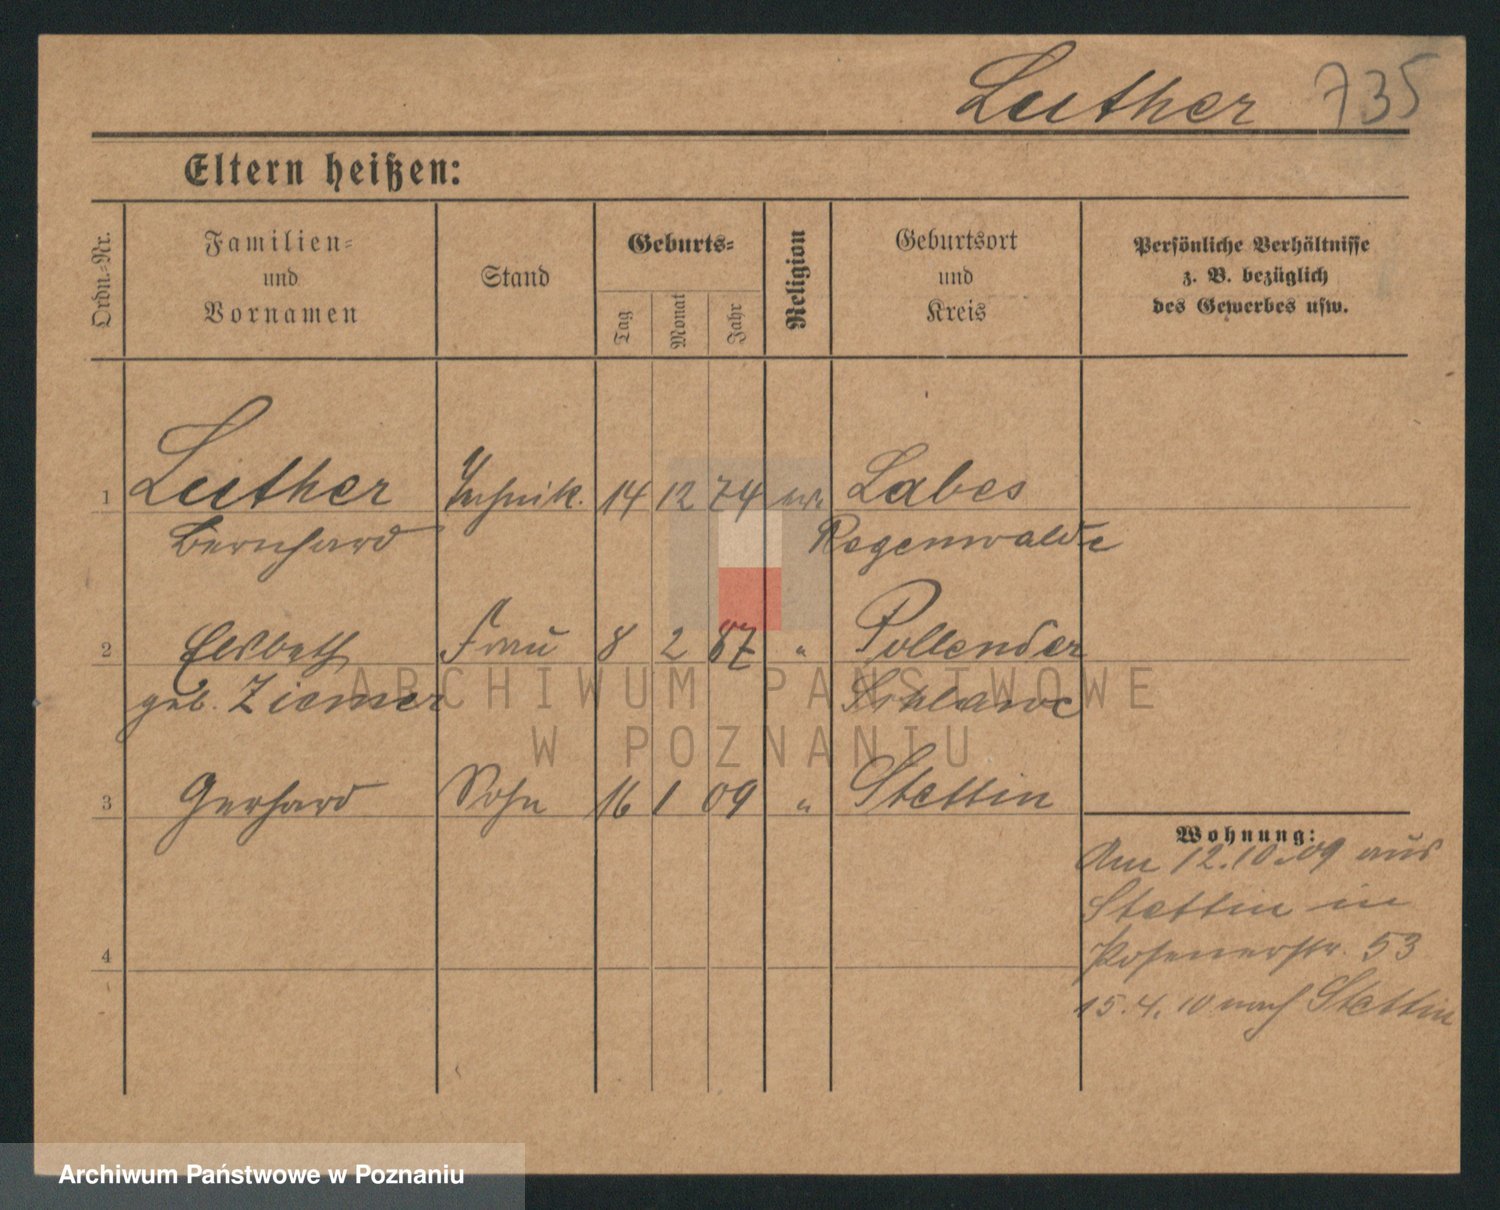 Luther 735
Eltern heißen:
Ordn.-Nr.
Familien-
und
Vornamen
Stand
Geburts-
Tag
Monat
Jahr
Religion
Geburtsort
und
Kreis
Persönliche Verhältnisse
z. B. bezüglich
des Gewerbes usw.
1 Luther Technik. 14 12 74 ev. Labes
Bernhard Regenwalde
2 Elsbeth Frau 8 2 87 " Pollender
geb. Ziemer Schlawe
3 Gerhard Sohn 16 1 09 " Stettin
4
Wohnung:
Am 12.10.09 aus
Stettin in
Posenerstr. 53
15.4.10 nach Stettin
ARCHIWUM PAŃSTWOWE
W POZNANIU
Archiwum Państwowe w Poznaniu